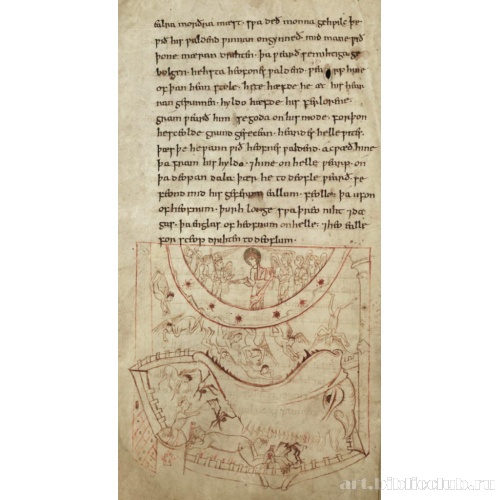 ealra morðra mæst. swa deð monna gehwilc þe
wið his waldend winnan ongynneð. mid mane wið
þone mæran drihten. þa wearð se mihtiga ge
bolgen. hehsta heofones waldend. wearp hine
of þan hean stole. hete hæfde he æt his hear
ran gewunnen. hyldo hæfde his ferlorene.
gram wearð him se goda on his mode. forþon
he sceolde grund gesecean. heardes helle wites.
þæs þe he wann wið heofnes waldend. acwæð hine
þa fram his hyldo. ⁊ hine on helle wearp. on
þa deopan dala. þær he to deofle wearð. se
feond mid his geferum eallum. feollon þa ufon
of heofnum. þurh longe swa þreo niht ⁊ da
gas. þa englas of heofnum on helle. ⁊ heo ealle
for sceop drihten to deoflum.
art.biblioclub.ru